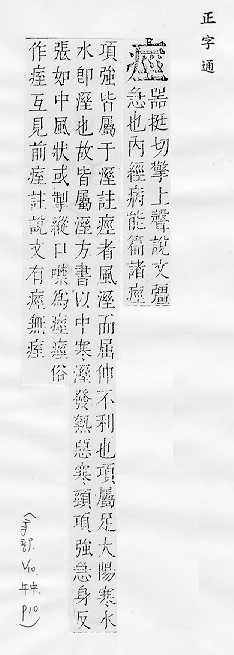 正字通
痙
噐挺切擎上聲說文彊
急也內經病能篇諸痙
項強皆屬于溼註痙者風溼而屈伸不利也項屬足太陽寒水
水卽溼也故皆屬溼方書以中寒溼發熱惡寒頸項強急身反
張如中風狀或掣縱口噤爲痙痙俗
作痓互見前痓註說文有痙無痓